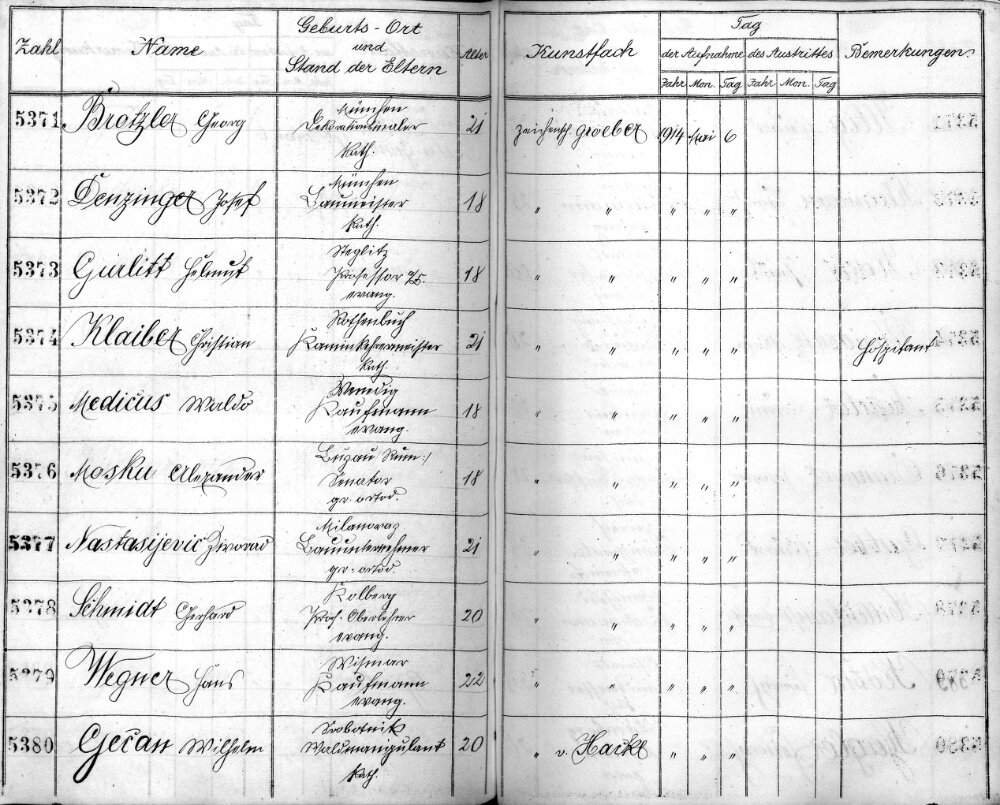 Zahl Name Geburts-Ort und Stand der Eltern Alter Kunstfach Tag der Aufnahme des Austrittes Bemerkungen
Jahr Mon. Tag Jahr Mon. Tag
München
5371 Brotzler Georg Dekorationsmaler 21 Zeichensch. Groeber 1914 Mai 6
Kath.
München
5372 Denzinger Josef Baumeister 18 " " " " "
Kath.
Steglitz
5373 Gurlitt Helmut Professor 18 " " " " "
evang.
Rothenbuch
5374 Klaiber Christian Kaminkehrermeister 21 " " " " " Hospitant
Kath.
Venedig
5375 Medicus Waldo Kaufmann 18 " " " " "
evang.
Buzau Rum:/
5376 Mosku Alexander Senator 18 " " " "
gr. ortod.
Milanovaz
5377 Nastasijević Zivorad Bauunternehmer 21 " " " "
gr. ortod.
Kolberg
5378 Schmidt Gerhard Prof. Oberlehrer 20 " " " " "
evang.
Wismar
5379 Wegner Hans Kaufmann 22 " " " " "
evang.
Srobotnik
5380 Gečan Wilhelm 20 " v. Hackl " " "
Kath.